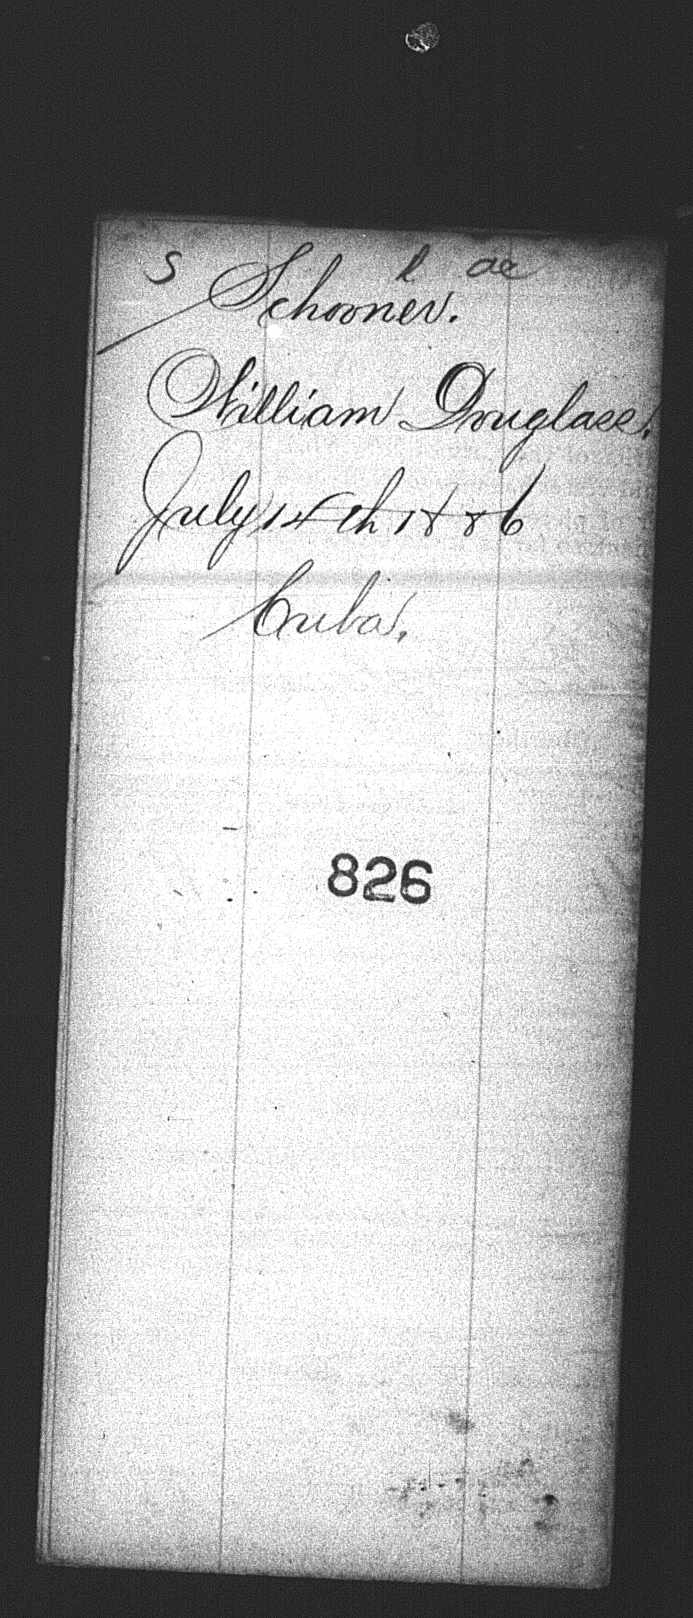 S l ae
Schooner.
William Douglass.
July 14th 1886
Cuba.
826